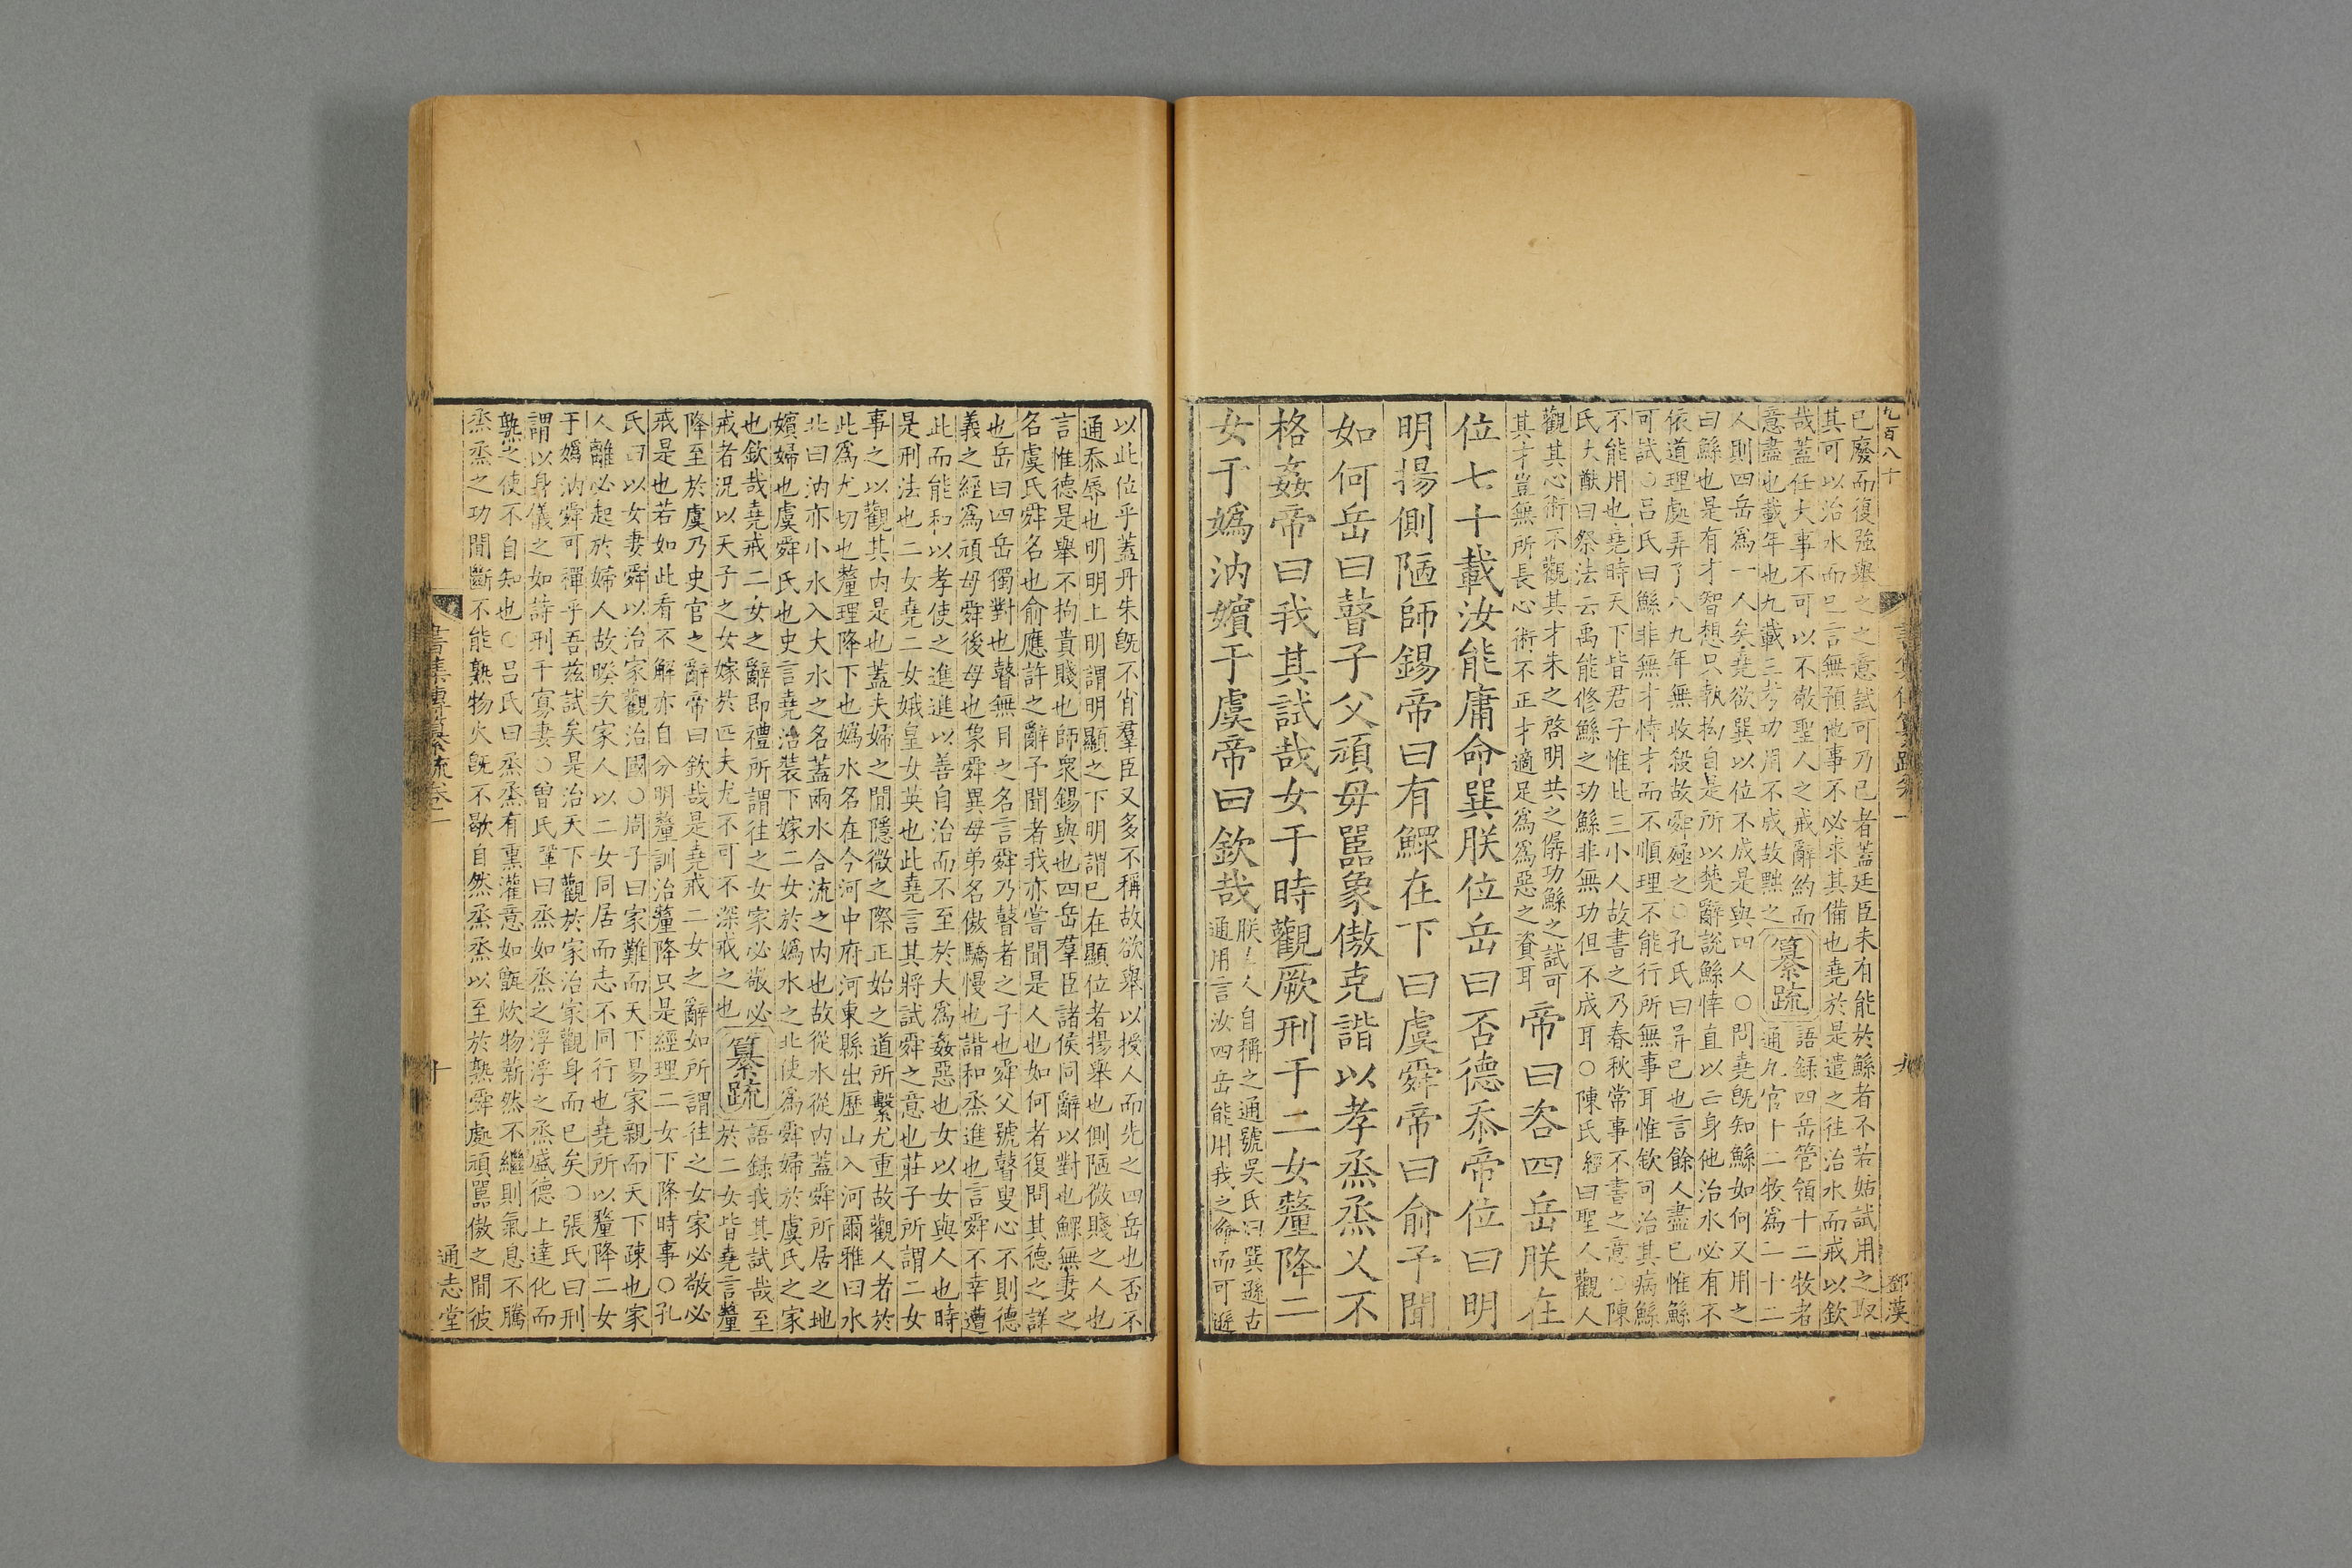 九百八十
書集傳纂疏卷一
九
鄧漢
已廢而復強舉之之意試可乃已者蓋廷臣未有能於鯀者不若姑試用之取
其可以治水而已言無預他事不必求其備也堯於是遣之往治水而戒以欽
哉蓋任大事不可以不敬聖人之戒辭約而
意盡也載年也九載三考功用不成故黜之
纂疏
語録四岳管領十二牧者
通九官十二牧爲二十二
人則四岳爲一人矣堯欲巽以位不成是與四人○問堯旣知鯀如何又用之
曰鯀也是有才智想只執拗自是所以楚辭說鯀悻直以亡身他治水必有不
依道理處弄了八九年無收殺故舜殛之○孔氏曰异已也言餘人盡已惟鯀
可試○呂氏曰鯀非無才恃才而不順理不能行所無事耳惟欽可治其病鯀
不能用也堯時天下皆君子惟此三小人故書之乃春秋常事不書之意○陳
氏大猷曰祭法云禹能修鯀之功鯀非無功但不成耳○陳氏經曰聖人觀人
觀其心術不觀其才朱之啓明共之僝功鯀之試可
其才豈無所長心術不正才適足爲爲惡之資耳
帝曰咨四岳朕在
位七十載汝能庸命巽朕位岳曰否德忝帝位曰明
明揚側陋師錫帝曰有鰥在下曰虞舜帝曰俞予聞
如何岳曰瞽子父頑母嚚象傲克諧以孝烝烝乂不
格姦帝曰我其試哉女于時觀厥刑于二女釐降二
女于嬀汭嬪于虞帝曰欽哉
朕古人自稱之通號吳氏曰巽遜古
通用言汝四岳能用我之命而可遜
以此位乎蓋丹朱旣不肖羣臣又多不稱故欲舉以授人而先之四岳也否不
通忝辱也明明上明謂明顯之下明謂已在顯位者揚舉也側陋微賤之人也
言惟德是舉不拘貴賤也師衆錫與也四岳羣臣諸侯同辭以對也鰥無妻之
名虞氏舜名也俞應許之辭予聞者我亦嘗聞是人也如何者復問其德之詳
也岳曰四岳獨對也瞽無目之名言舜乃瞽者之子也舜父號瞽叟心不則德
義之經爲頑母舜後母也象舜異母弟名傲驕慢也諧和烝進也言舜不幸遭
此而能和以孝使之進進以善自治而不至於大爲姦惡也女以女與人也時
是刑法也二女堯二女娥皇女英也此堯言其將試舜之意也莊子所謂二女
事之以觀其內是也蓋夫婦之閒隱微之際正始之道所繫尤重故觀人者於
此爲尤切也釐理降下也嬀水名在今河中府河東縣出歷山入河爾雅曰水
北曰汭亦小水入大水之名蓋兩水合流之內也故從水從內蓋舜所居之地
嬪婦也虞舜氏也史言堯治裝下嫁二女於嬀水之北使爲舜婦於虞氏之家
也欽哉堯戒二女之辭即禮所謂往之女家必敬必
戒者況以天子之女嫁於匹夫尤不可不深戒之也
纂疏
語録我其試哉至
於二女皆堯言釐
降至於虞乃史官之辭帝曰欽哉是堯戒二女之辭如所謂往之女家必敬必
戒是也若如此看不解亦自分明釐訓治釐降只是經理二女下降時事○孔
氏曰以女妻舜以治家觀治國○周子曰家難而天下易家親而天下疎也家
人離必起於婦人故暌次家人以二女同居而志不同行也堯所以釐降二女
于嬀汭舜可禪乎吾茲試矣是治天下觀於家治家觀身而已矣○張氏曰刑
謂以身儀之如詩刑于寡妻○曾氏鞏曰烝如烝之浮浮之烝盛德上達化而
熟之使不自知也○呂氏曰烝烝有熏灌意如甑炊物薪然不繼則氣息不騰
烝烝之功閒斷不能熟物火旣不歇自然烝烝以至於熟舜處頑嚚傲之閒彼
書集傳纂疏卷一
十
通志堂